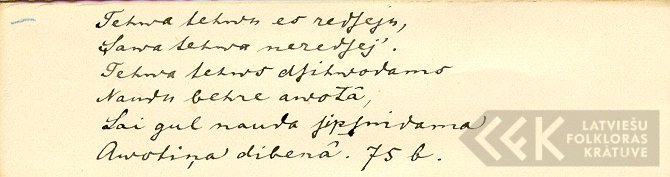 Tehwa tehwu es redseju,
Sawa tehwa neredsej'.
Tehwa tehws dsihwodams
Naudu behre awotâ,
Lai gul nauda spihdama
Awotiņa dibenâ. 75 b.
LATVIEŠU
FOLKLORAS
KRĀTUVE